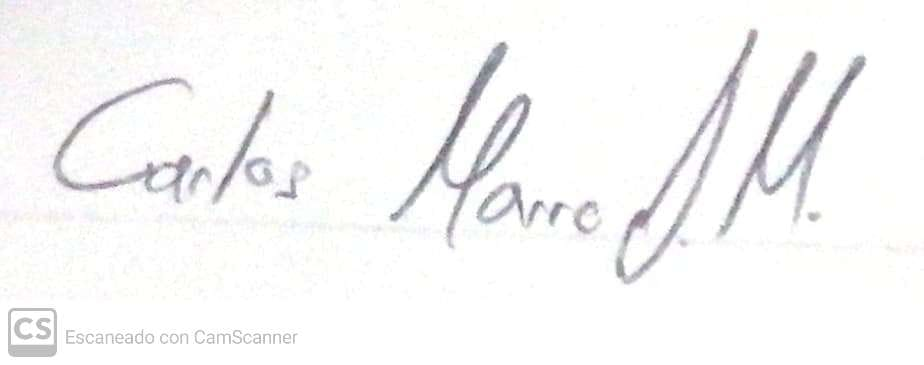 Carlos Marro J.M.
CS Escaneado con CamScanner